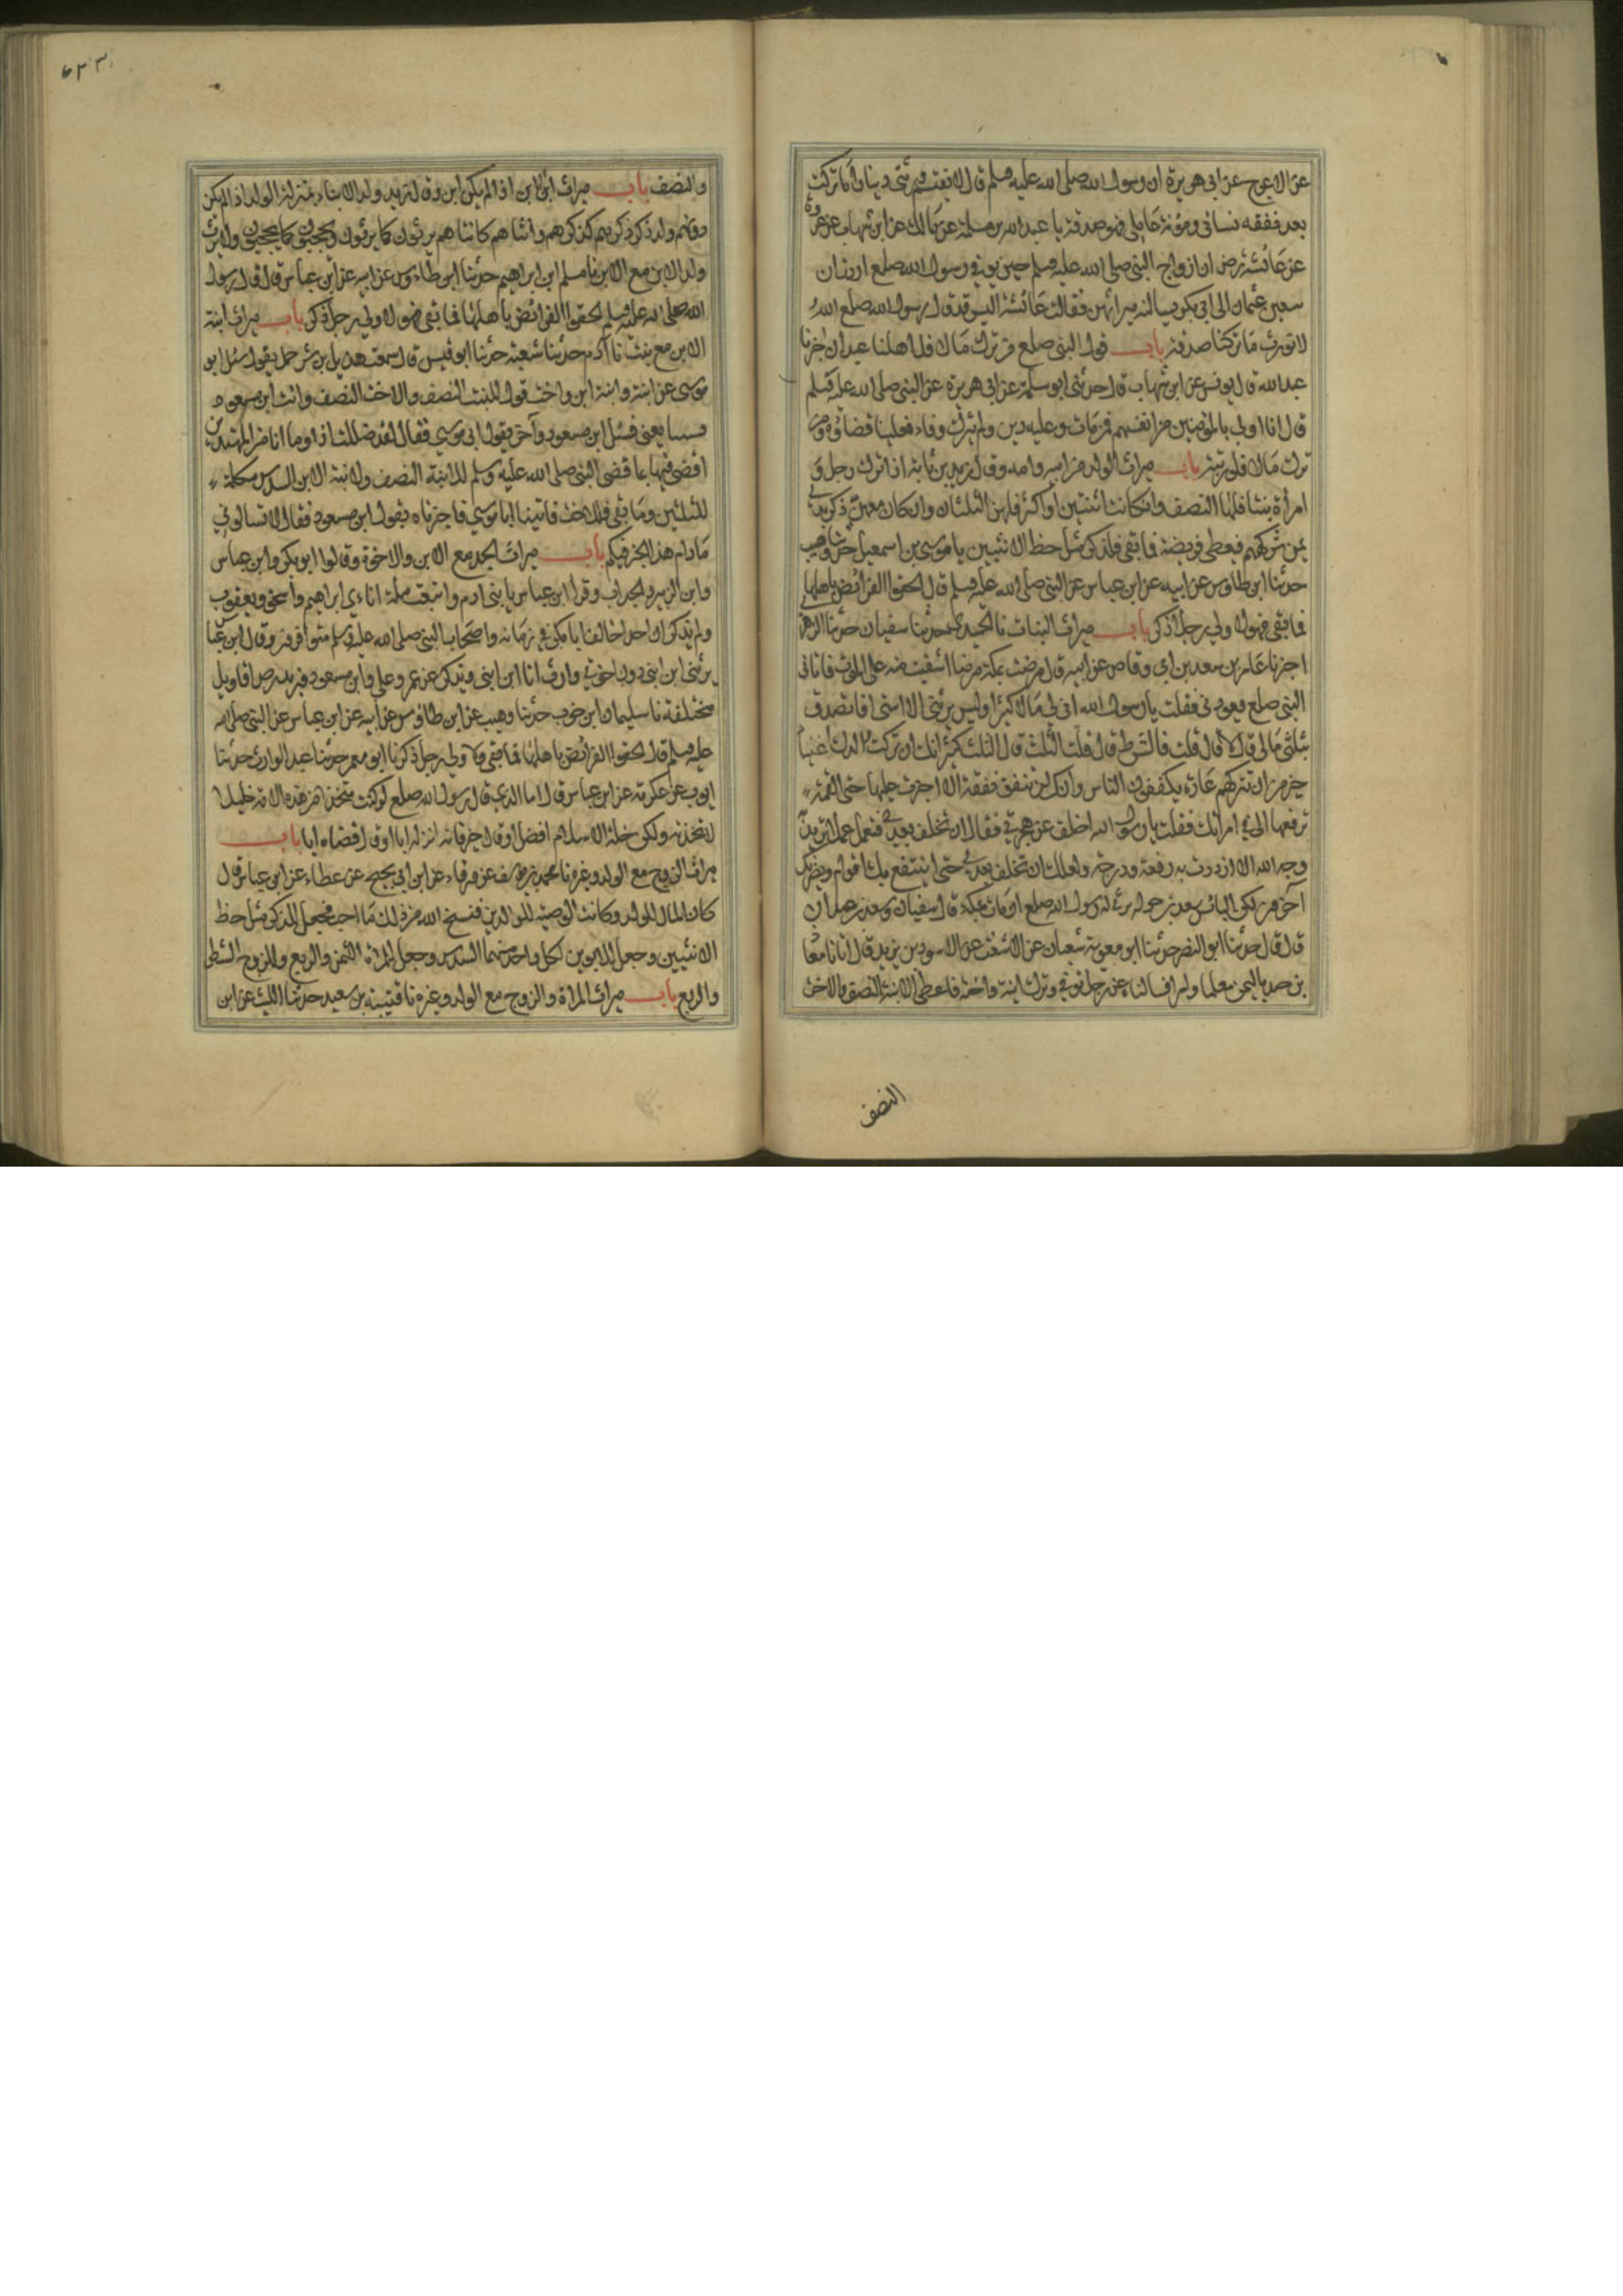 عن الاعرج عن ابى هريرة ان رسول الله صلى الله عليه وسلم قال لا يقتسم ورثتى دينارا ما تركت
بعد نفقه نسائى ومؤنة عاملى فهو صدقة با عبد الله بن مسلمة عن مالك عن ابن شهاب عن عروة
عن عائشة رض ان ازواج النبى صلى الله عليه وسلم حين توفى رسول الله صلعم اردن ان
يبعثن عثمان الى ابى بكر يسالنه ميراثهن فقالت عائشة اليس قد قال رسول الله صلعم
لا نورث ما تركنا صدقة باب قول النبى صلعم من ترك مالا فلاهله نا عبدان اخبرنا
عبد الله قال يونس عن ابن شهاب قال حدثنى ابو سلمة عن ابى هريرة عن النبى صلى الله عليه وسلم
قال انا اولى بالمؤمنين من انفسهم فمن مات وعليه دين ولم يترك وفاء فعلينا قضاؤه ومن
ترك مالا فلورثته باب ميراث الولد من ابيه وامه وقال زيد بن ثابت اذا ترك رجل و
امرأة بنتا فلها النصف وان كانتا اثنتين او اكثر فلهن الثلثان وان كان معهن ذكر بدئ
بمن شركهم فيعطى فريضة فما بقى فللذكر مثل حظ الانثيين با موسى بن اسمعيل حدثنا وهيب
حدثنا ابن طاوس عن ابيه عن ابن عباس عن النبى صلى الله عليه وسلم قال الحقوا الفرائض باهلها
فما بقى فهو لاولى رجل ذكر باب ميراث البنات نا الحميدى حدثنا سفيان حدثنا الزهرى
اخبرنا عامر بن سعد بن ابى وقاص عن ابيه قال مرضت بمكة مرضا اشفيت منه على الموت فاتانى
النبى صلعم يعودنى فقلت يا رسول الله ان لى مالا كثيرا وليس يرثنى الا ابنتى افاتصدق
بثلثى مالى قال لا قال قلت فالشطر قال لا قلت الثلث قال الثلث كثير انك ان تركت ولدك اغنياء
خير من ان تتركهم عالة يتكففون الناس وانك لن تنفق نفقة الا اجرت عليها حتى اللقمة
ترفعها الى فى امرأتك فقلت يا رسول الله اخلف عن هجرتى فقال لن تخلف بعدى فتعمل عملا تريد به
وجه الله الا ازددت به رفعة ودرجة ولعلك ان تخلف بعدى حتى ينتفع بك اقوام ويضر بك
آخرون لكن البائس سعد بن خولة يرثى له رسول الله صلعم ان مات بمكة قال سفيان وسعد بن خولة
قال حدثنا ابو النضر حدثنا ابو معوية شيبان عن الاشعث عن الاسود بن يزيد قال اتانا معاذ
بن جبل باليمن معلما واميرا فسالناه عن رجل توفى وترك ابنته واخته فاعطى الابنة النصف والاخت
النصف
٦٣٣
والنصف باب ميراث ابن الابن اذا لم يكن ابن وقال زيد ولد الابناء بمنزلة الولد اذا لم يكن
دونهم ولد ذكر ذكرهم كذكرهم وانثاهم كانثاهم يرثون كما يرثون ويحجبون كما يحجبون ولا يرث
ولد الابن مع الابن نا مسلم ابن ابراهيم حدثنا ابن طاوس عن ابيه عن ابن عباس قال قال رسول
الله صلى الله عليه وسلم الحقوا الفرائض باهلها فما بقى فهو لاولى رجل ذكر باب ميراث ابنة
الابن مع بنت نا آدم حدثنا شعبة حدثنا ابو قيس قال سمعت هذيل بن شرحبيل يقول سئل ابو
موسى عن ابنة وابنة ابن واخت فقول للبنت النصف وللاخت النصف وائت ابن مسعود
فسئل ابن مسعود واخبر بقول ابى موسى فقال لقد ضللت اذا وما انا من المهتدين
اقضى فيها بما قضى النبى صلى الله عليه وسلم للابنة النصف ولابنة الابن السدس تكملة
للثلثين وما بقى فللاخت فاتينا ابا موسى فاخبرناه بقول ابن مسعود فقال لا تسالونى
ما دام هذا الحبر فيكم باب ميراث الجد مع الابن والاخوة وقالوا ابو بكر وابن عباس
وابن الزبير الجد اب وقرأ ابن عباس يا بنى ادم واتبعت ملة اباءى ابراهيم واسحق ويعقوب
ولم يذكر ان احدا خالف ابا بكر فى زمانه واصحاب النبى صلى الله عليه وسلم متوافرون وقال ابن عباس
يرثنى ابن ابنى دون اخوتى ولا ارث انا ابن ابنى ويذكر عن عمر وعلى وابن مسعود وزيد رض اقاويل
مختلفة نا سليمان ابن حرب حدثنا وهيب عن ابن طاوس عن ابيه عن ابن عباس عن النبى صلى الله
عليه وسلم قال الحقوا الفرائض باهلها فما بقى فلاولى رجل ذكر نا ابو معمر حدثنا عبد الوارث حدثنا
ايوب عن عكرمة عن ابن عباس قال اما الذى قال رسول الله صلعم لو كنت متخذا من هذه الامة خليلا
لاتخذته ولكن خلة الاسلام افضل او قال خير فانه انزله ابا او قال قضاه ابا باب
ميراث الزوج مع الولد وغيره نا محمد بن يوسف عن ورقاء عن ابن ابى نجيح عن عطاء عن ابن عباس قال
كان المال للولد وكانت الوصية للوالدين فنسخ الله من ذلك ما احب فجعل للذكر مثل حظ
الانثيين وجعل للابوين لكل واحد منهما السدس وجعل للمراة الثمن والربع وللزوج الشطر
والربع باب ميراث المراة والزوج مع الولد وغيره نا قتيبة بن سعيد حدثنا الليث عن ابن